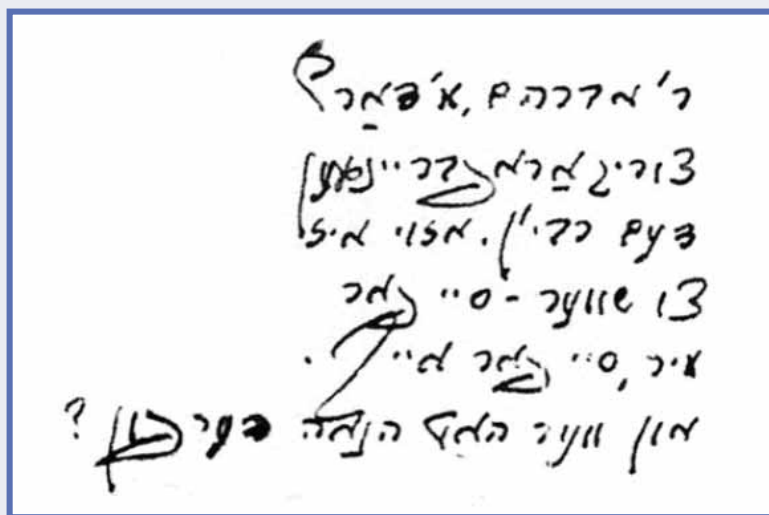 ר' אברהם, א'דאַרף
צוריק אַראפברײנגען
דעם רבי'ן. אזוי איז
צו שווער - סיי פאר
מיר, סיי פאר אייך.
און ווער האט הנאה דערפון?